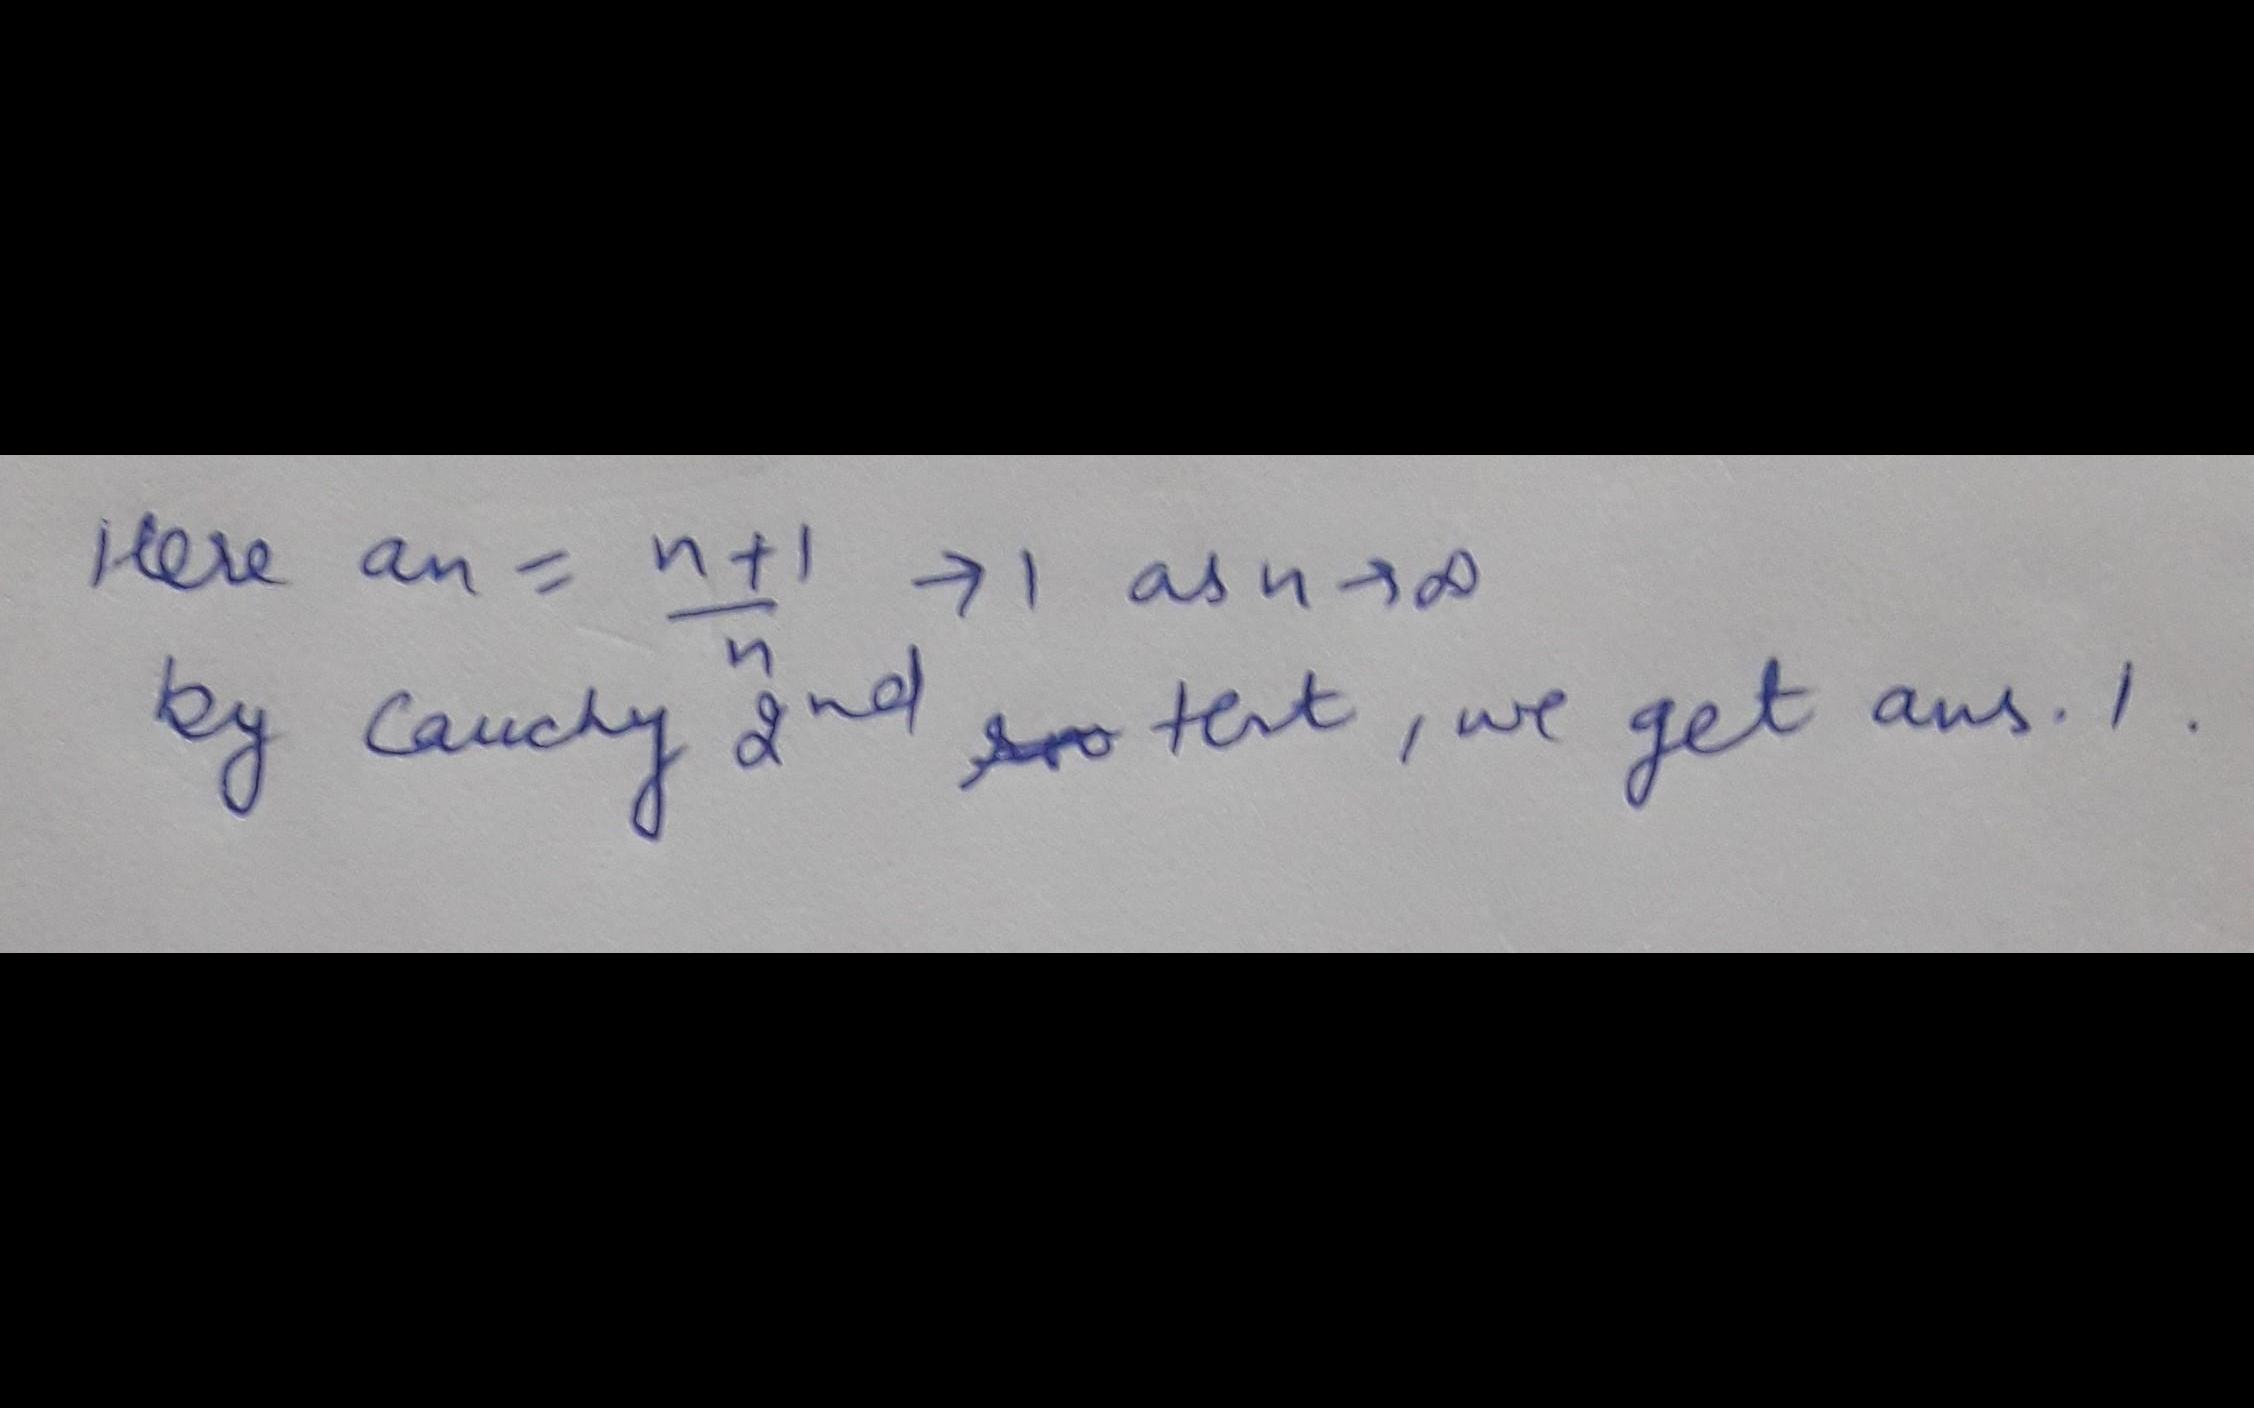 Here an = n+1/n → 1 as n → ∞
by Cauchy 2nd test, we get ans. 1.